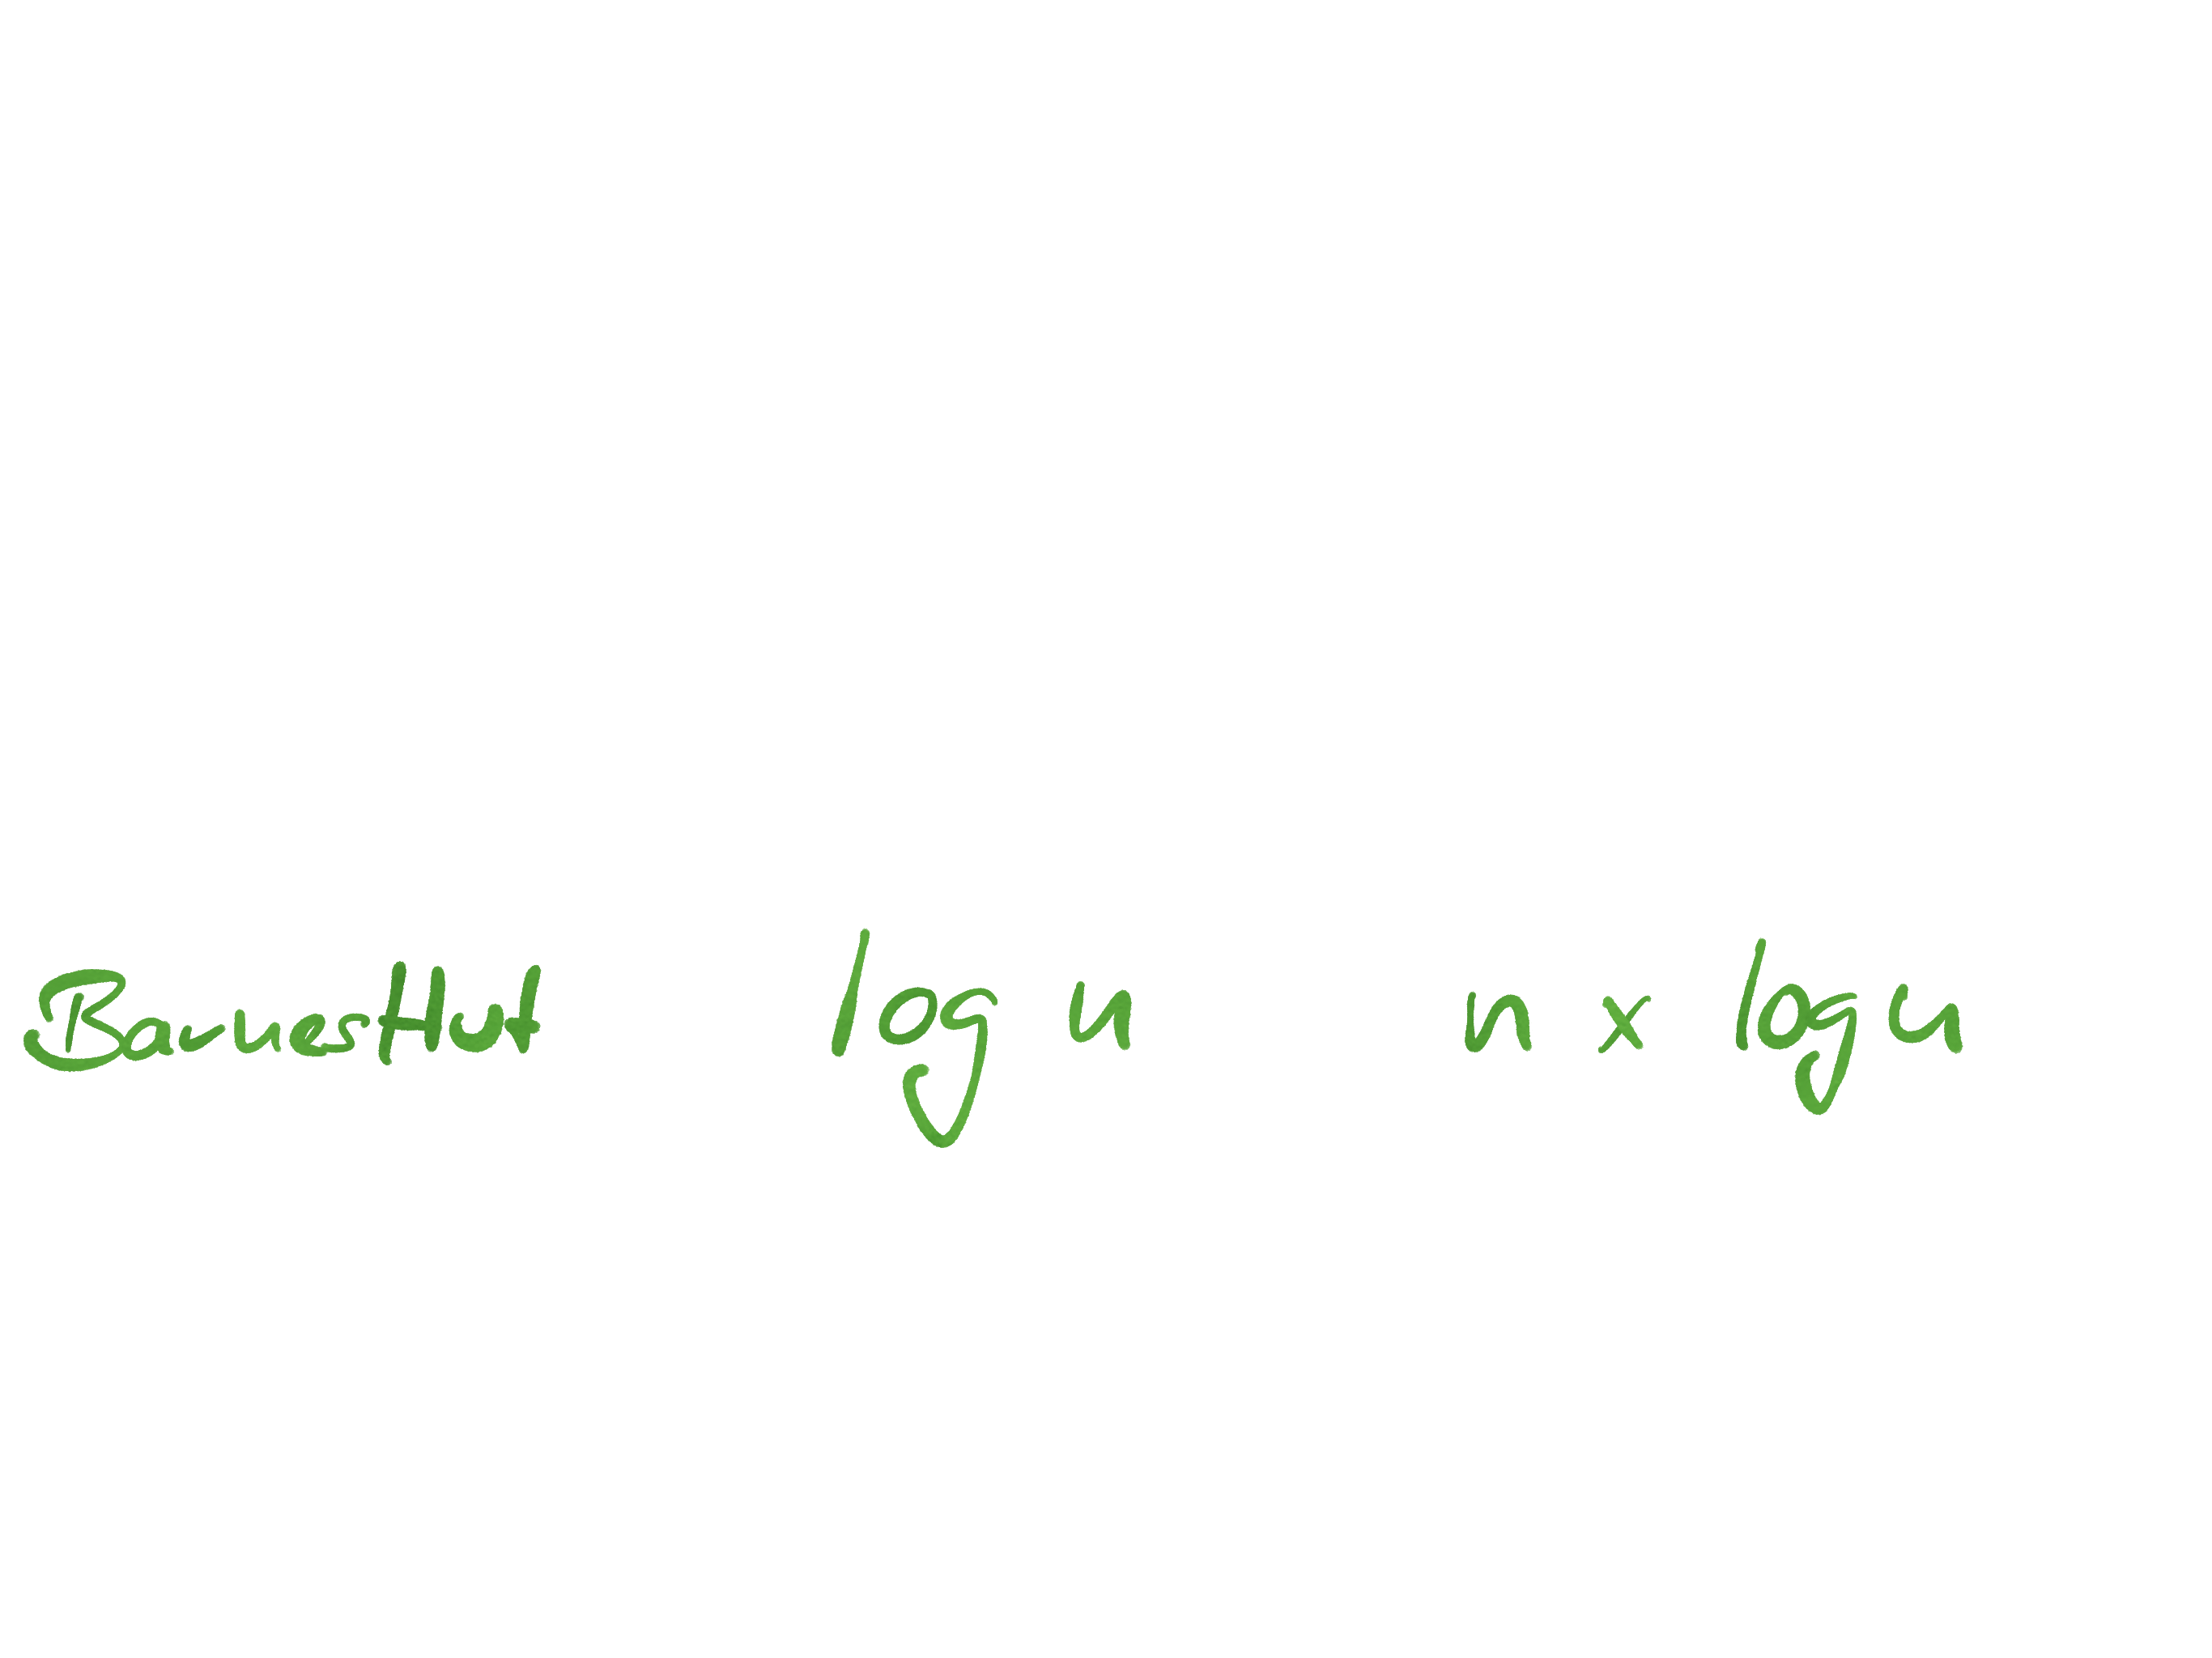 Barnes Hut log n n x log n